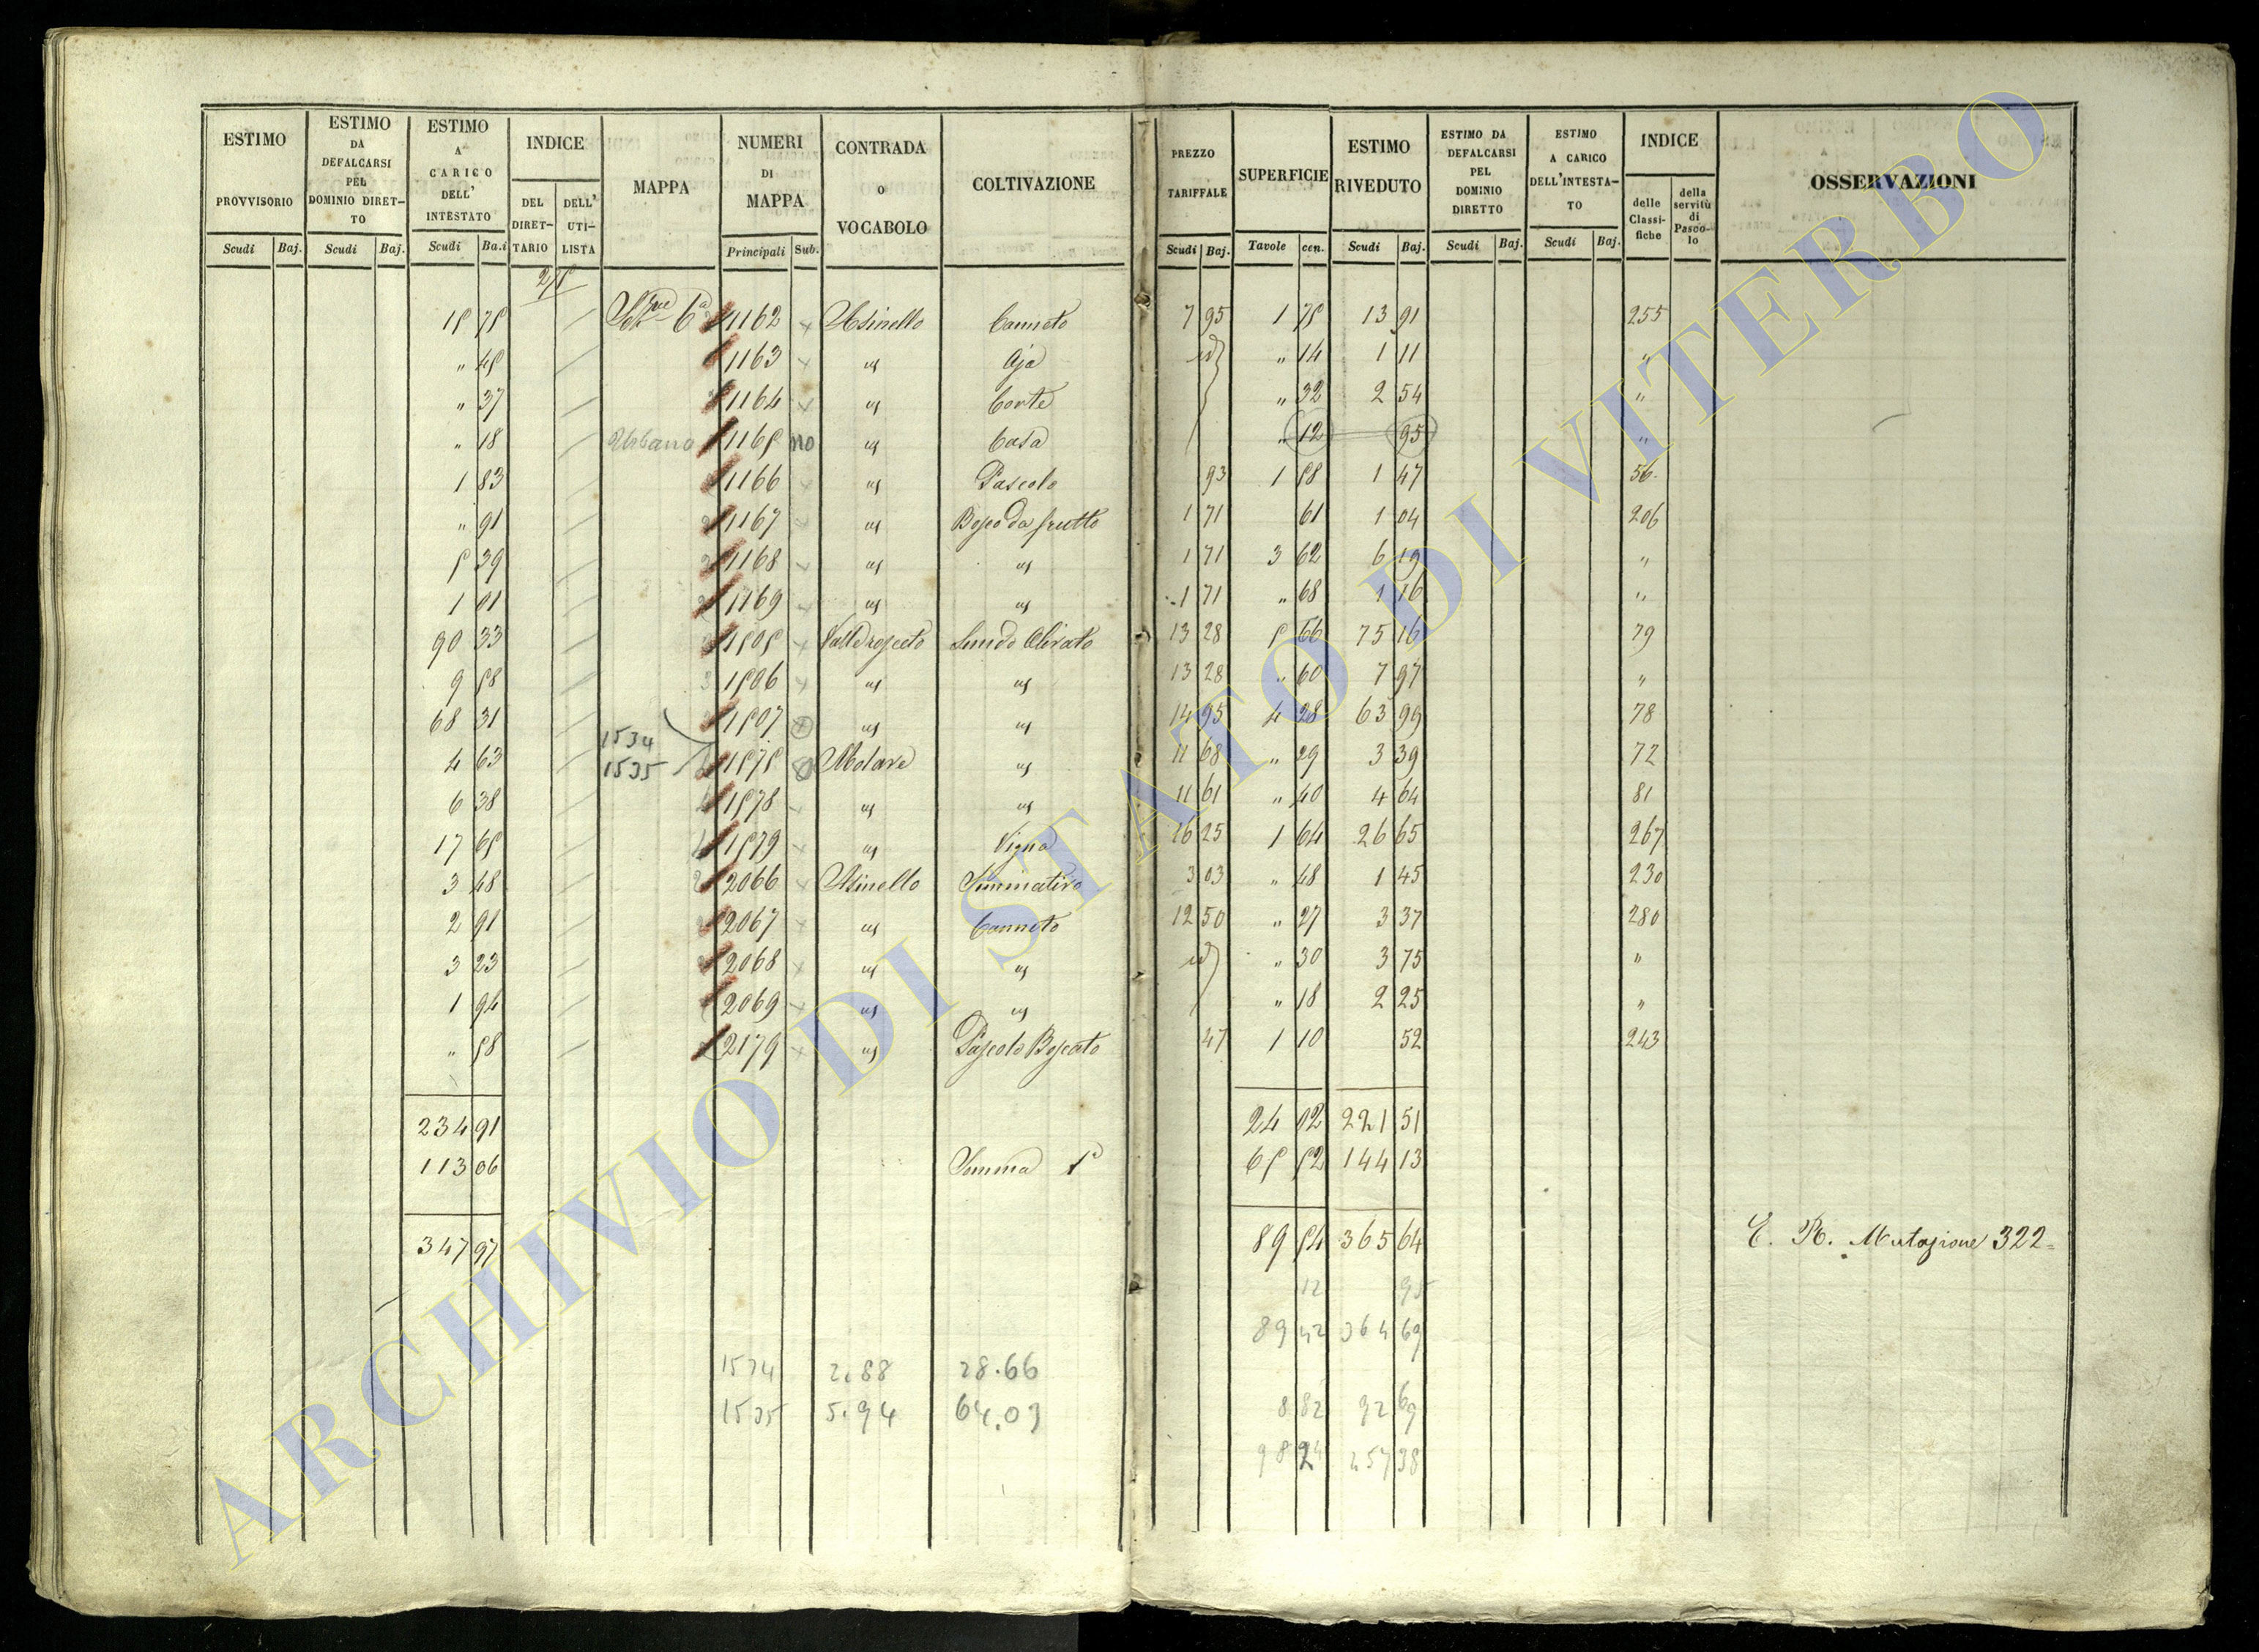 ESTIMO PROVVISORIO Scudi Baj.
ESTIMO DA DEFALCARSI PEL DOMINIO DIRETTO Scudi Baj.
ESTIMO A CARICO DELL' INTESTATO Scudi Ba.i
INDICE DEL DIRET-TARIO DELL' UTI-LISTA
MAPPA
NUMERI DI MAPPA Principali Sub.
CONTRADA o VOCABOLO
COLTIVAZIONE
PREZZO TARIFFALE Scudi Baj.
SUPERFICIE Tavole cen.
ESTIMO RIVEDUTO Scudi Baj.
ESTIMO DA DEFALCARSI PEL DOMINIO DIRETTO Scudi Baj.
ESTIMO A CARICO DELL'INTESTA-TO Scudi Baj.
INDICE delle Classi-fiche della servitù di Pasco-lo
OSSERVAZIONI
15 75 6a 1162 Asinello Canneto 7 95 1 75 13 91 255
" 45 1163 " Aja id " 14 1 11 "
" 37 1164 " Corte " 32 2 54 "
" 18 Urbano 1165 no " Casa " 12 95 "
1 83 1166 " Pascolo 93 1 58 1 47 56
" 91 1167 " Bosco da frutto 1 71 61 1 04 206
5 39 1168 " " 1 71 3 62 6 19 "
1 01 1169 " " 1 71 " 68 1 16 "
90 33 1505 Olivato 13 28 5 66 75 16 79
9 58 1506 " " 13 28 " 60 7 97 "
68 31 1507 " " 14 95 4 28 63 99 78
1534
1535
4 63 1575 Molare " 11 68 " 29 3 39 72
6 38 1578 " " 11 61 " 40 4 64 81
17 65 1579 " Vigna 16 25 1 64 26 65 267
3 48 2066 Asinello Seminativo 3 03 " 48 1 45 230
2 91 2067 " Canneto 12 50 " 27 3 37 280
3 23 2068 " " id " 30 3 75 "
1 94 2069 " " " 18 2 25 "
" 58 2179 " Pascolo Boscato 47 1 10 52 243
234 91 24 02 221 51
113 06 Somma 65 52 144 13
347 97 89 54 365 64 E. R. Mutazione 322
12 95
89 42 364 69
1534 2.88 28.66
1535 5.94 64.03 8 82 92 69
98 24 457 38
ARCHIVIO DI STATO DI VITERBO